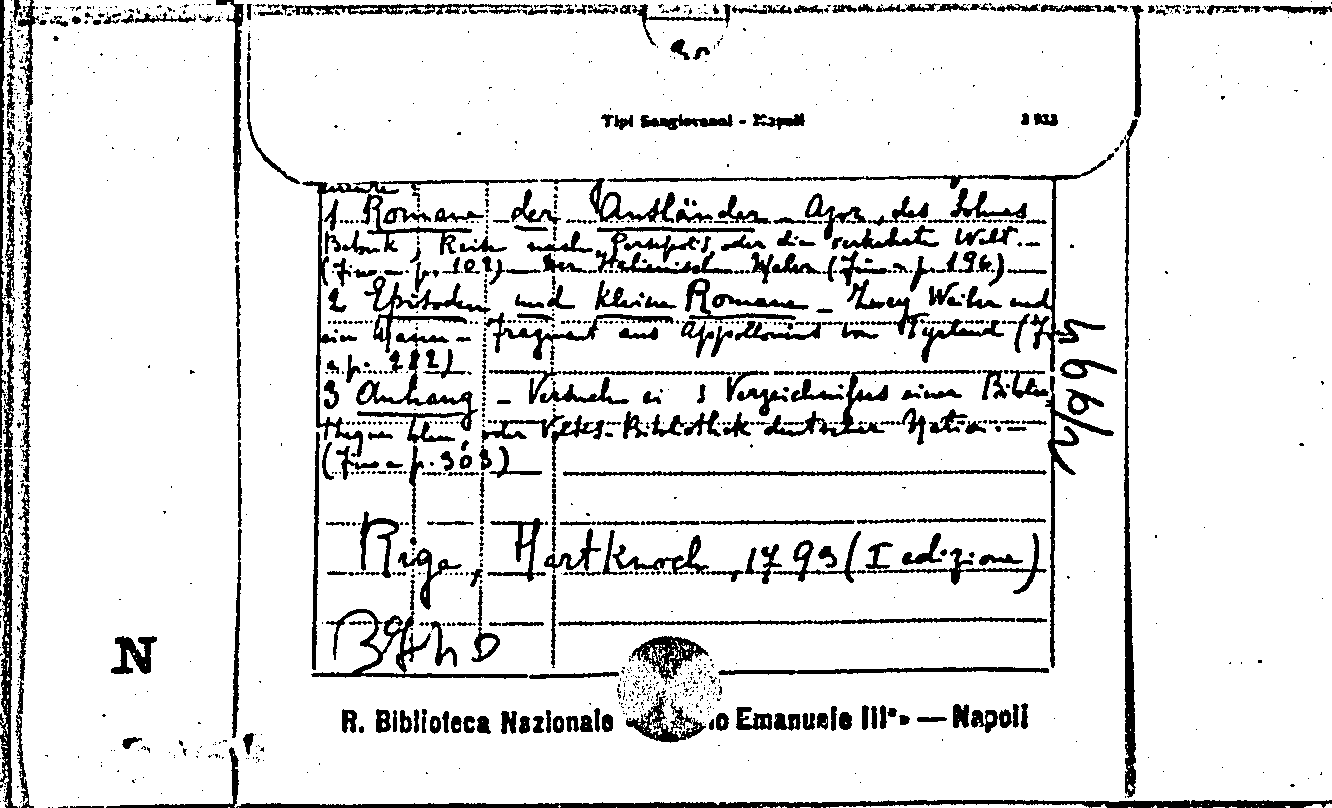 Tipi Sangiovanni - Napoli
1 Romane der Ausländer - Agor, des Sohnes
Reise nach Persepolis, oder die verkehrte Welt. -
(Fino a p. 102) - Der Italienisch (Fino a p. 196)
2 Episoden und kleine Romane - Zwey Weiber und
ein Mann - fragment aus Appollonius von Tyrland (Fino
a p. 282)
3 Anhang - Versuch ei s Verzeichnisses einer Biblio
oder Volks-Bibliothek deutscher Nation. -
(Fino a p. 303)
Riga, Hartknoch, 1793 (I edizione)
N
R. Biblioteca Nazionale « io Emanuele III°» — Napoli